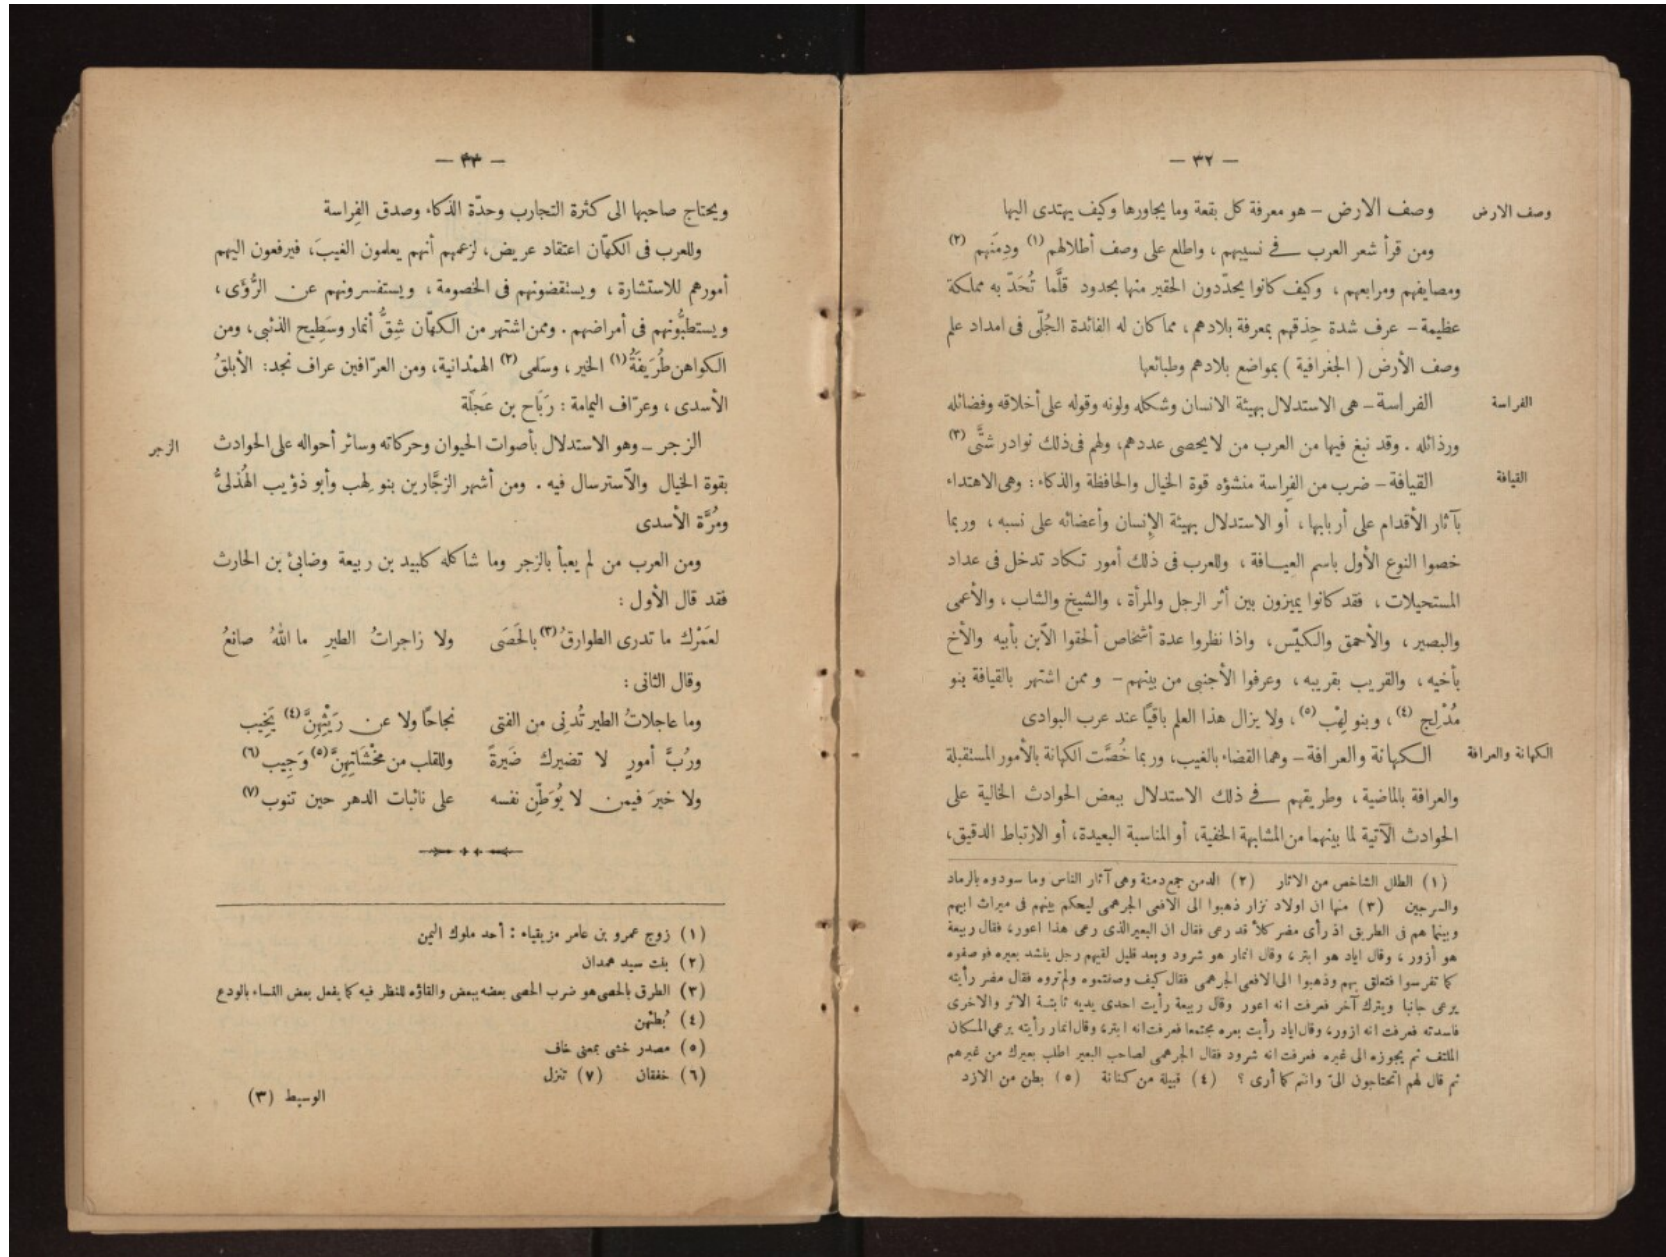 — ٣٢ —
وصف الارض
وصف الارض – هو معرفة كل بقعة وما يجاورها وكيف يهتدى اليها
ومن قرأ شعر العرب فى نسيبهم ، واطلع على وصف أطلالهم (١) ودِمَنهم (٢)
ومصايفهم ومرابعهم ، وكيف كانوا يحدّدون الحقير منها بحدود قلَّما تُحَدّ به مملكة
عظيمة – عرف شدة حِذقهم بمعرفة بلادهم ، مما كان له الفائدة الجُلّى فى امداد علم
وصف الأرض ( الجغرافية ) بمواضع بلادهم وطبائعها
الفراسة
الفراسة – هى الاستدلال بهيئة الانسان وشكله ولونه وقوله على أخلاقه وفضائله
ورذائله . وقد نبغ فيها من العرب من لا يحصى عددهم، ولهم فى ذلك نوادر شتَّى (٣)
القيافة
القيافة – ضرب من الفِراسة منشؤه قوة الخيال والحافظة والذكاء : وهى الاهتداء
بآثار الأقدام على أربابها ، أو الاستدلال بهيئة الإِنسان وأعضائه على نسبه ، وربما
خصوا النوع الأول باسم العِيـافة ، وللعرب فى ذلك أمور تكاد تدخل فى عداد
المستحيلات ، فقد كانوا يميزون بين أثر الرجل والمرأة ، والشيخ والشاب ، والأعمى
والبصير ، والأحمق والكيّس، واذا نظروا عدة أشخاص ألحقوا الاّبن بأبيه والأخ
بأخيه ، والقريب بقريبه ، وعرفوا الأجنبى من بينهم – وممن اشتهر بالقيافة بنو
مُدْلِج (٤) ، وبنو لِهْب (٥) ، ولا يزال هذا العلم باقيًا عند عرب البوادى
الكهانة والعرافة
الكهانة والعرافة – وهما القضاء بالغيب، وربما خُصَّت الكهانة بالأمور المستقبلة
والعرافة بالماضية ، وطريقهم فى ذلك الاستدلال ببعض الحوادث الخالية على
الحوادث الآتية لما بينهما من المشابهة الخفية، أو المناسبة البعيدة، أو الارتباط الدقيق،
(١) الطلل الشاخص من الاثار (٢) الدمن جمع دمنة وهى آثار الناس وما سودوه بالرماد
والسرجين (٣) منها ان اولاد نزار ذهبوا الى الافعى الجرهمى ليحكم بينهم فى ميراث ابيهم
وبينما هم فى الطريق اذ رأى مضر كلأ قد رعى فقال ان البعير الذى رعى هذا اعور، فقال ربيعة
هو أزور ، وقال اياد هو ابتر، وقال انمار هو شرود وبعد قليل لقيهم رجل ينشد بعيره فوصفوه
كما تفرسوا فتعلق بهم وذهبوا الى الافعى الجرهمى فقال كيف وصفتموه ولم تروه فقال مضر رأيته
يرعى جانبا ويترك آخر فعرفت انه اعور وقال ربيعة رأيت احدى يديه ثابتة الاثر والاخرى
فاسدته فعرفت انه ازور، وقال اياد رأيت بعره مجتمعا فعرفت انه ابتر، وقال انمار رأيته يرعى المكان
الملتف ثم يجوزه الى غيره فعرفت انه شرود فقال الجرهمى لصاحب البعير اطلب بعيرك من غيرهم
ثم قال لهم اتحتاجون الىّ وانتم كما أرى ؟ (٤) قبيلة من كنانة (٥) بطن من الازد
— ٣٣ —
ويحتاج صاحبها الى كثرة التجارب وحدّة الذكاء وصدق الفِراسة
وللعرب فى الكهّان اعتقاد عريض، لزعمهم أنهم يعلمون الغيبَ، فيرفعون اليهم
أمورهم للاستشارة ، ويستقضونهم فى الخصومة ، ويستفسرونهم عن الرُّؤَى ،
ويستطبُّونهم فى أمراضهم . وممن اشتهر من الكهّان شِقُّ أنمار وسَطِيح الذئبى، ومن
الكواهن طُرَيفَةُ (١) الخير ، وسَلمى (٢) الهمْدانية، ومن العرّافين عراف نجد: الأبلقُ
الأسدى ، وعرّاف اليمامة : رَبَاح بن عَجَلَة
الزجر
الزجر – وهو الاستدلال بأصوات الحيوان وحركاته وسائر أحواله على الحوادث
بقوة الخيال والاّسترسال فيه . ومن أشهر الزجَّارين بنو لِهب وأبو ذؤيب الهُذلىُّ
ومُرَّة الأسدى
ومن العرب من لم يعبأ بالزجر وما شاكله كلبيد بن ربيعة وضابئ بن الحارث
فقد قال الأول :
لعَمْرك ما تدرى الطوارقُ (٣) بالحَصَى ولا زاجراتُ الطيرِ ما اللهُ صانعُ
وقال الثانى :
وما عاجلاتُ الطير تُدنِى من الفتى نجاحًا ولا عن رَيْثِهِنَّ (٤) يَخِيب
ورُبَّ أمورٍ لا تضيرك ضَيرةً وللقلب من مخْشَاتِهِنَّ (٥) وَجِيب (٦)
ولا خيرَ فيمن لا يُوَطِّن نفسه على نائبات الدهر حين تنوب (٧)
(١) زوج عمرو بن عامر مزيقياء : أحد ملوك اليمن
(٢) بنت سيد همدان
(٣) الطرق بالحصى هو ضرب الحصى بعضه ببعض والقاؤه للنظر فيه كما يفعل بعض النساء بالودع
(٤) بُطئهن
(٥) مصدر خشى بمعنى خاف
(٦) خفقان (٧) تنزل
الوسيط (٣)